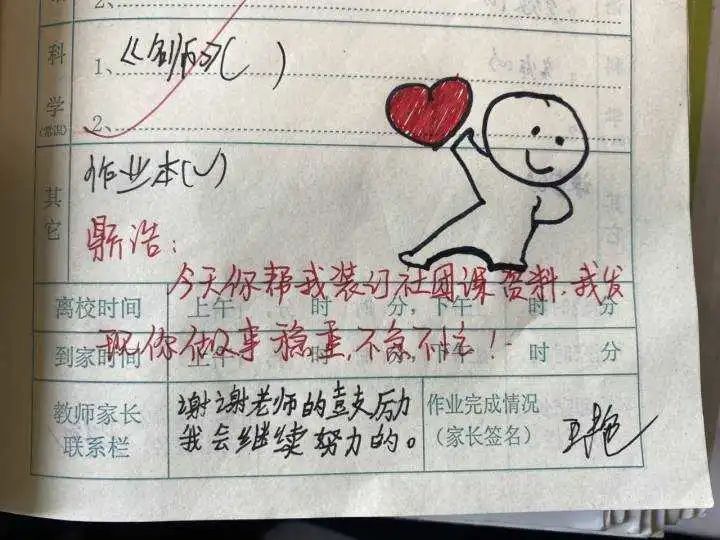 2、
科学
(常识)
1、《创历》( )
2、
其它
作业本(✓)
鼎浩:
今天你帮我装订社团课资料,我发
现你做事稳重,不急不忙!
离校时间 上午 时 分,下午 时 分
到家时间 上午 时 分,下午 时 分
教师家长
联系栏
谢谢老师的鼓励
我会继续努力的。
作业完成情况
(家长签名)